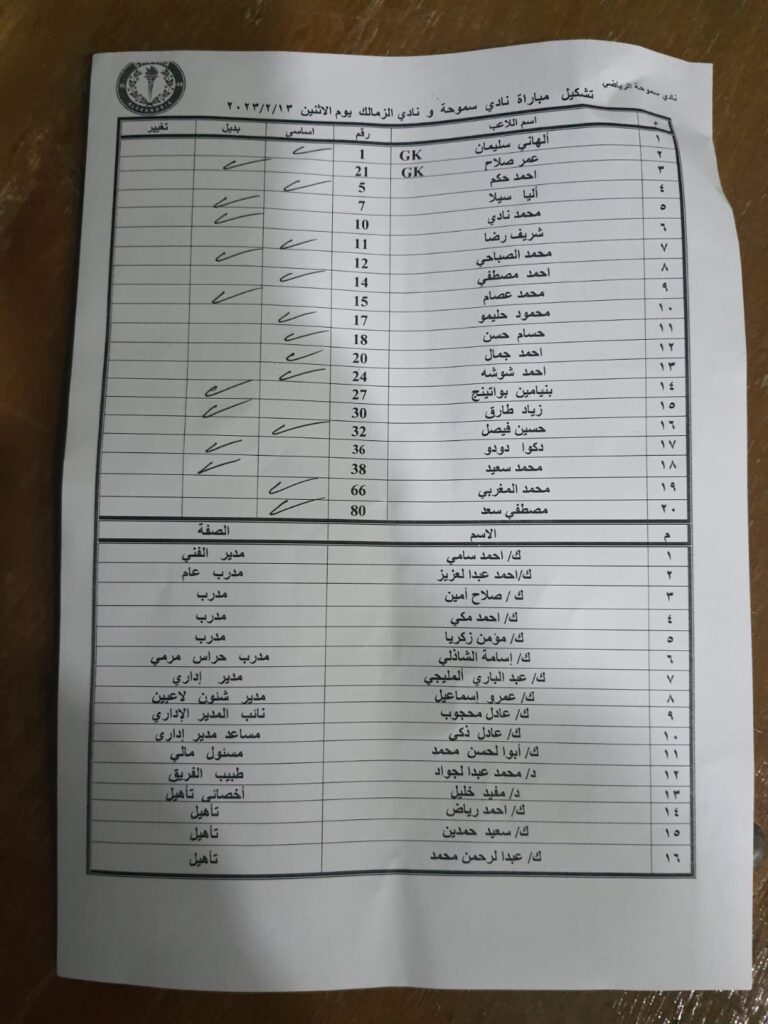 نادي سموحة الرياضي
تشكيل مباراة نادي سموحة و نادي الزمالك يوم الاثنين ٢٠٢٣/٢/١٣
م اسم اللاعب رقم اساسى بديل تغيير
١ ألهاني سليمان GK 1
٢ عمر صلاح GK 21
٣ احمد حكم 5
٤ أليا سيلا 7
٥ محمد نادي 10
٦ شريف رضا 11
٧ محمد الصباحي 12
٨ احمد مصطفي 14
٩ محمد عصام 15
١٠ محمود حليمو 17
١١ حسام حسن 18
١٢ احمد جمال 20
١٣ احمد شوشه 24
١٤ بنيامين بواتينج 27
١٥ زياد طارق 30
١٦ حسين فيصل 32
١٧ دكوا دودو 36
١٨ محمد سعيد 38
١٩ محمد المغربي 66
٢٠ مصطفي سعد 80
م الاسم الصفة
١ ك/ احمد سامي مدير الفني
٢ ك/احمد عبدا لعزيز مدرب عام
٣ ك / صلاح أمين مدرب
٤ ك/ احمد مكي مدرب
٥ ك/ مؤمن زكريا مدرب
٦ ك/ إسامة الشاذلي مدرب حراس مرمي
٧ ك/ عبد الباري ألمليجي مدير إداري
٨ ك/ عمرو إسماعيل مدير شئون لاعبين
٩ ك/ عادل محجوب نائب المدير الإداري
١٠ ك/ عادل ذكي مساعد مدير إداري
١١ ك/ أبوا لحسن محمد مسئول مالي
١٢ د/ محمد عبدا لجواد طبيب الفريق
١٣ د/ مفيد خليل أخصائى تأهيل
١٤ ك/ احمد رياض تأهيل
١٥ ك/ سعيد حمدين تأهيل
١٦ ك/ عبدا لرحمن محمد تأهيل